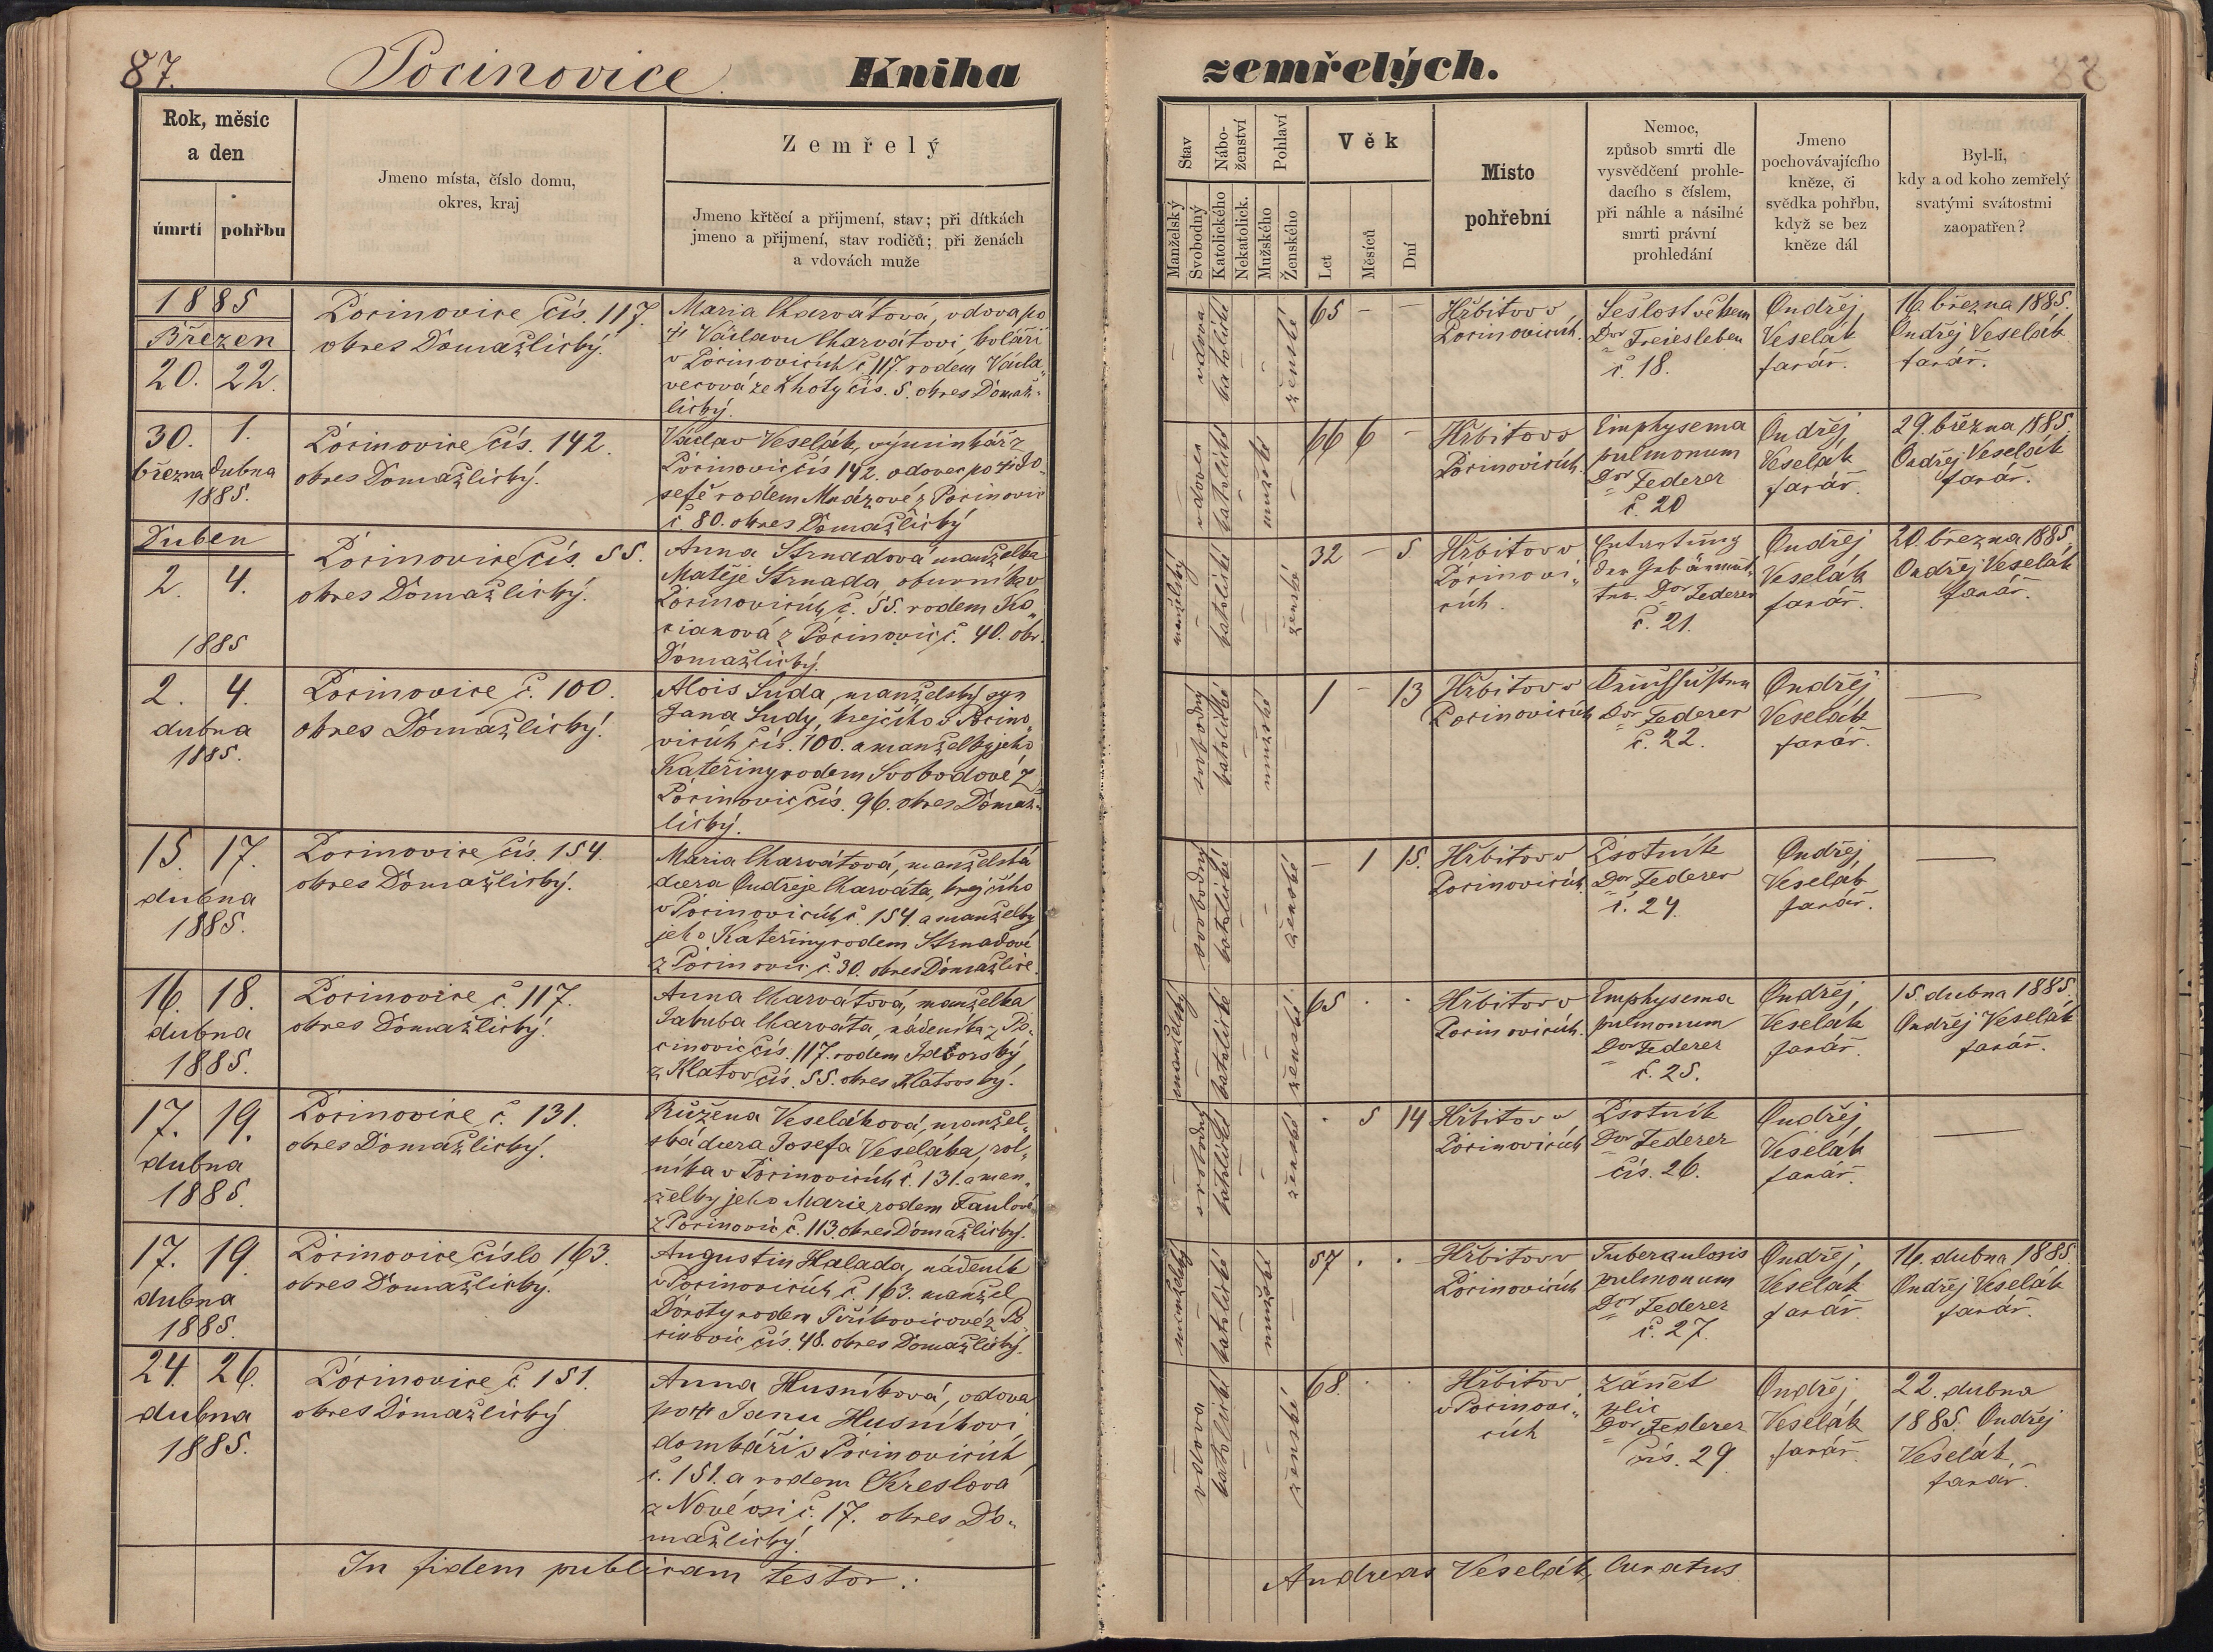 87.
Pocinovice
Kniha
zemřelých.
88
Rok, měsíc
a den
úmrtí
pohřbu
Jmeno místa, číslo domu,
okres, kraj
Zemřelý
Jmeno křtěcí a přijmení, stav; při dítkách
jmeno a přijmení, stav rodičů; při ženách
a vdovách muže
Stav
Nábo-
ženství
Pohlaví
Manželský
Svobodný
Katolického
Nekatolick.
Mužského
Ženského
Věk
Let
Měsíců
Dní
Místo
pohřební
Nemoc,
způsob smrti dle
vysvědčení prohle-
dacího s číslem,
při náhle a násilné
smrti právní
prohledání
Jmeno
pochovávajícího
kněze, či
svědka pohřbu,
když se bez
kněze dál
Byl-li,
kdy a od koho zemřelý
svatými svátostmi
zaopatřen?
1885
Březen
20. 22.
Pocinovice čís. 117.
okres Domažlický.
Maria Charvátová, vdova po
† Václavu Charvátovi koláři
v Pocinovicích č. 117. rodem Václa„
vecová ze Lhoty čís. 5. okres Domaž-
lický.
vdova
katolické
ženské
65 – –
Hřbitov v
Pocinovicích.
Sešlost věkem
Dor Freiesleben
č. 18.
Ondřej
Veselák
farář.
16. března 1885.
Ondřej Veselák
farář.
30. 1.
března dubna
1885.
Pocinovice čís. 142.
okres Domažlický.
Václav Veselák, výminkář z
Pocinovic čís 142. vdovec po † Jo-
sefě rodem Mrázové z Pocinovic
č 80. okres Domažlický
vdovec
katolické
mužské
66 6 –
Hřbitov v
Pocinovicích.
Emphysema
pulmonum
Dor Federer
č. 20
Ondřej
Veselák
farář.
29. března 1885.
Ondřej Veselák
farář.
Duben
2. 4.
1885
Pocinovice čís. 55.
okres Domažlický.
Anna Strnadová manželka
Matěje Strnada, obuvníka v
Pocinovicích č. 55. rodem Ko„
cianová z Pocinovic č. 40. okr.
Domažlický.
manželský
katolické
ženské
32 – 5
Hřbitov v
Pocinovi„
cích.
Entartung
der Gebärmut„
ter. Dor Federer
č. 21.
Ondřej
Veselák
farář.
20. března 1885.
Ondřej Veselák
farář.
2. 4.
dubna
1885.
Pocinovice č. 100.
okres Domažlický.
Alois Suda, manželský syn
Jana Sudy, krejčího v Pocino„
vicích čís. 100. a manželky jeho
Kateřiny rodem Svobodové z
Pocinovic čís. 96. okres Domaž-
lický.
svobodný
katolické
mužské
1 – 13
Hřbitov v
Pocinovicích
Dor Federer
č. 22.
Ondřej
Veselák
farář.
15. 17.
dubna
1885.
Pocinovice čís. 154.
okres Domažlický.
Maria Charvátová, manželská
dcera Ondřeje Charváta, krejčího
v Pocinovicích č. 154 a manželky
jeho Kateřiny rodem Strnadové
z Pocinovic č. 30. okres Domažlice.
svobodný
katolické
ženské
– 1 15.
Hřbitov v
Pocinovicích.
Psotník
Dor Federer
č. 24.
Ondřej
Veselák
farář.
16. 18.
dubna
1885.
Pocinovice č. 117.
okres Domažlický.
Anna Charvátová, manželka
Jakuba Charváta, nádeníka z Po-
cinovic čís. 117. rodem
z Klatov čís. 55. okres Klatovský.
manželský
katolické
ženské
65 . .
Hřbitov v
Pocinovicích.
Emphysema
pulmonum
Dor Federer
č. 25.
Ondřej
Veselák
farář.
15. dubna 1885.
Ondřej Veselák
farář.
17. 19.
dubna
1885.
Pocinovice č. 131.
okres Domažlický.
Růžena Veseláková, manžel„
ská dcera Josefa Veseláka, rol„
níka v Pocinovicích č. 131. a man„
želky jeho Marie rodem Faulové
z Pocinovic č. 113. okres Domažlický.
svobodný
katolické
ženské
. 5 14
Hřbitov v
Pocinovicích
Psotník
Dor Federer
čís. 26.
Ondřej
Veselák
farář.
17. 19.
dubna
1885.
Pocinovice číslo 163.
okres Domažlický.
Augustin Halada, nádeník
v Pocinovicích č. 163. manžel
Doroty rodem z Po
cinovic čís. 48. okres Domažlický.
manželský
katolické
mužské
57 . .
Hřbitov v
Pocinovicích
Tuberculosis
pulmonum
Dor Federer
č. 27.
Ondřej
Veselák
farář.
16. dubna 1885
Ondřej Veselák
farář.
24. 26.
dubna
1885.
Pocinovice č. 151.
okres Domažlický
Anna Husníková, vdova
po † Janu Husníkovi
domkáři v Pocinovicích
č. 151. a rodem Kreslová
z Nové vsi č. 17. okres Do„
mažlický.
vdova
katolické
ženské
68. . .
Hřbitov
v Pocinovi„
cích
zánět
plic
Dor Federer
čís. 29
Ondřej
Veselák
farář.
22. dubna
1885. Ondřej
Veselák,
farář.
In fidem publicam testor:
Andreas Veselák, Curatus